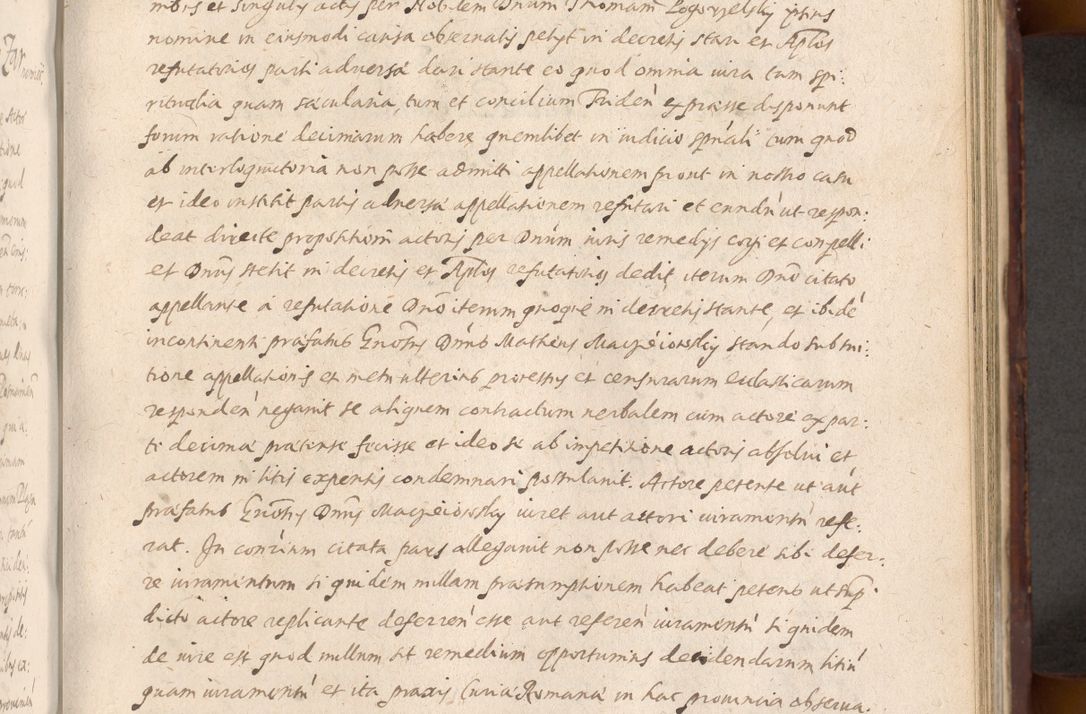 mbrs et singulis actis per Nobilem Dnum Thomam Zogorzelsky ipsius
nomine in eiusmodi causa observatis petijt in decretis stari et Aplos
refutatorios parti adversa dari stante eo quod omnia iura tam spi:
ritualia quam sæcularia, tum et concilium Triden expresse disponunt
forum ratione decimarum habere quemlibet in iudicio spirali tum quod
ab interloquutoria non posse admitti appellationem prout in nostro casu
et ideo institit partis adversa appellationem refutari et eundu ut respon:
deat directe propositioni actoris per Dnum iuris remedijs cogi et compelli
et Dnus stetit in decretis et Aplos refutatorios dedit iterum Dno citato
appellante a refutatione Dno iterum quoque in decretis stante, et ibide
incontinenti præfatus Gnosus Dnus Matheus Maczieiowsky stando submi:
tione appellationis et metu ulterius processus et censurarum ecclasticarum
responden negavit se aliquem contractum verbalem cum actore ex par:
te decima prætense fecisse et ideo se ab impetitione actoris absolui et
actorem in litis expensis condemnari postulavit. Actore petente ut aut
præfatus Gnosus Dnus Maczieiowsky iuret aut actori iuramentu refe:
rat. In conrium citata pars allegavit non posse nec debere sibi defer:
re iuramentum si quidem nullam præsumptionem habeat petens ut sup
dicto actore replicante deferren esse aut referen iuramentu si quidem
de iure est quod nullum sit remedium opportunius decidendarum litiu
quam iuramentu et ita praxis Curia Romana in hac provincia observa.